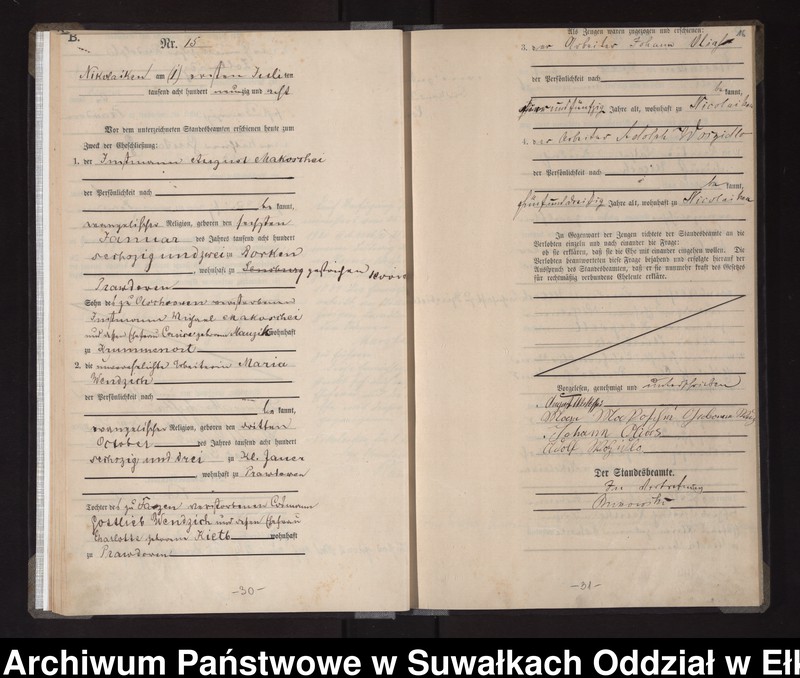 B.
Nr. 15
Nikolaiken am (1) ersten Juli ten
tausend acht hundert neunzig und acht
Vor dem unterzeichneten Standesbeamten erschienen heute zum
Zweck der Eheschließung:
1. der Instmann August Makoschei
der Persönlichkeit nach
be kannt,
evangelischer Religion, geboren den sechsten
Januar des Jahres tausend acht hundert
sechszig und zwei zu Borken
, wohnhaft zu Sensburg gestrichen
Prawdowen
Sohn des zu verstorbenen
Instmann Michael Makoschei
und dessen Ehefrau geborene wohnhaft
zu Krummenort
2. die unverehelichte Arbeiterin Maria
Wendzich
der Persönlichkeit nach
be kannt,
evangelischer Religion, geboren den dritten
October des Jahres tausend acht hundert
sechszig und drei zu Kl. Jauer
, wohnhaft zu Prawdowen
Tochter des zu verstorbenen
Gottlieb Wendzich und dessen Ehefrau
Charlotte geborene wohnhaft
zu Prawdowen
-30-
Als Zeugen waren zugezogen und erschienen:
3. der Arbeiter Johann
der Persönlichkeit nach
be kannt,
und fünfzig Jahre alt, wohnhaft zu Nicolaiken
4. der Arbeiter Adolph
der Persönlichkeit nach
be kannt,
fünf und dreißig Jahre alt, wohnhaft zu Nicolaiken
In Gegenwart der Zeugen richtete der Standesbeamte an die
Verlobten einzeln und nach einander die Frage:
ob sie erklären, daß sie die Ehe mit einander eingehen wollen. Die
Verlobten beantworteten diese Frage bejahend und erfolgte hierauf der
Ausspruch des Standesbeamten, daß er sie nunmehr kraft des Gesetzes
für rechtmäßig verbundene Eheleute erkläre.
Vorgelesen, genehmigt und unterschrieben
August
Johann
Adolf
Der Standesbeamte.
In Vertretung
-31-
Archiwum Państwowe w Suwałkach Oddział w Ełk